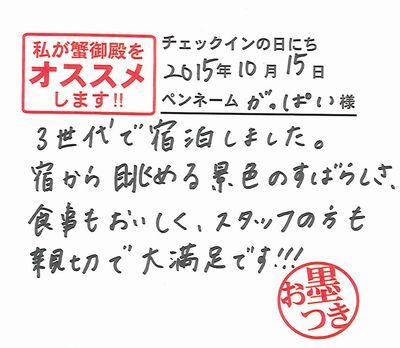 私が蟹御殿を
オススメ
します!!
チェックインの日にち
2015年10月15日
ペンネーム がっぱい様
3世代で宿泊しました。
宿から眺める景色のすばらしさ、
食事もおいしく、スタッフの方も
親切で大満足です!!!
お墨
つき